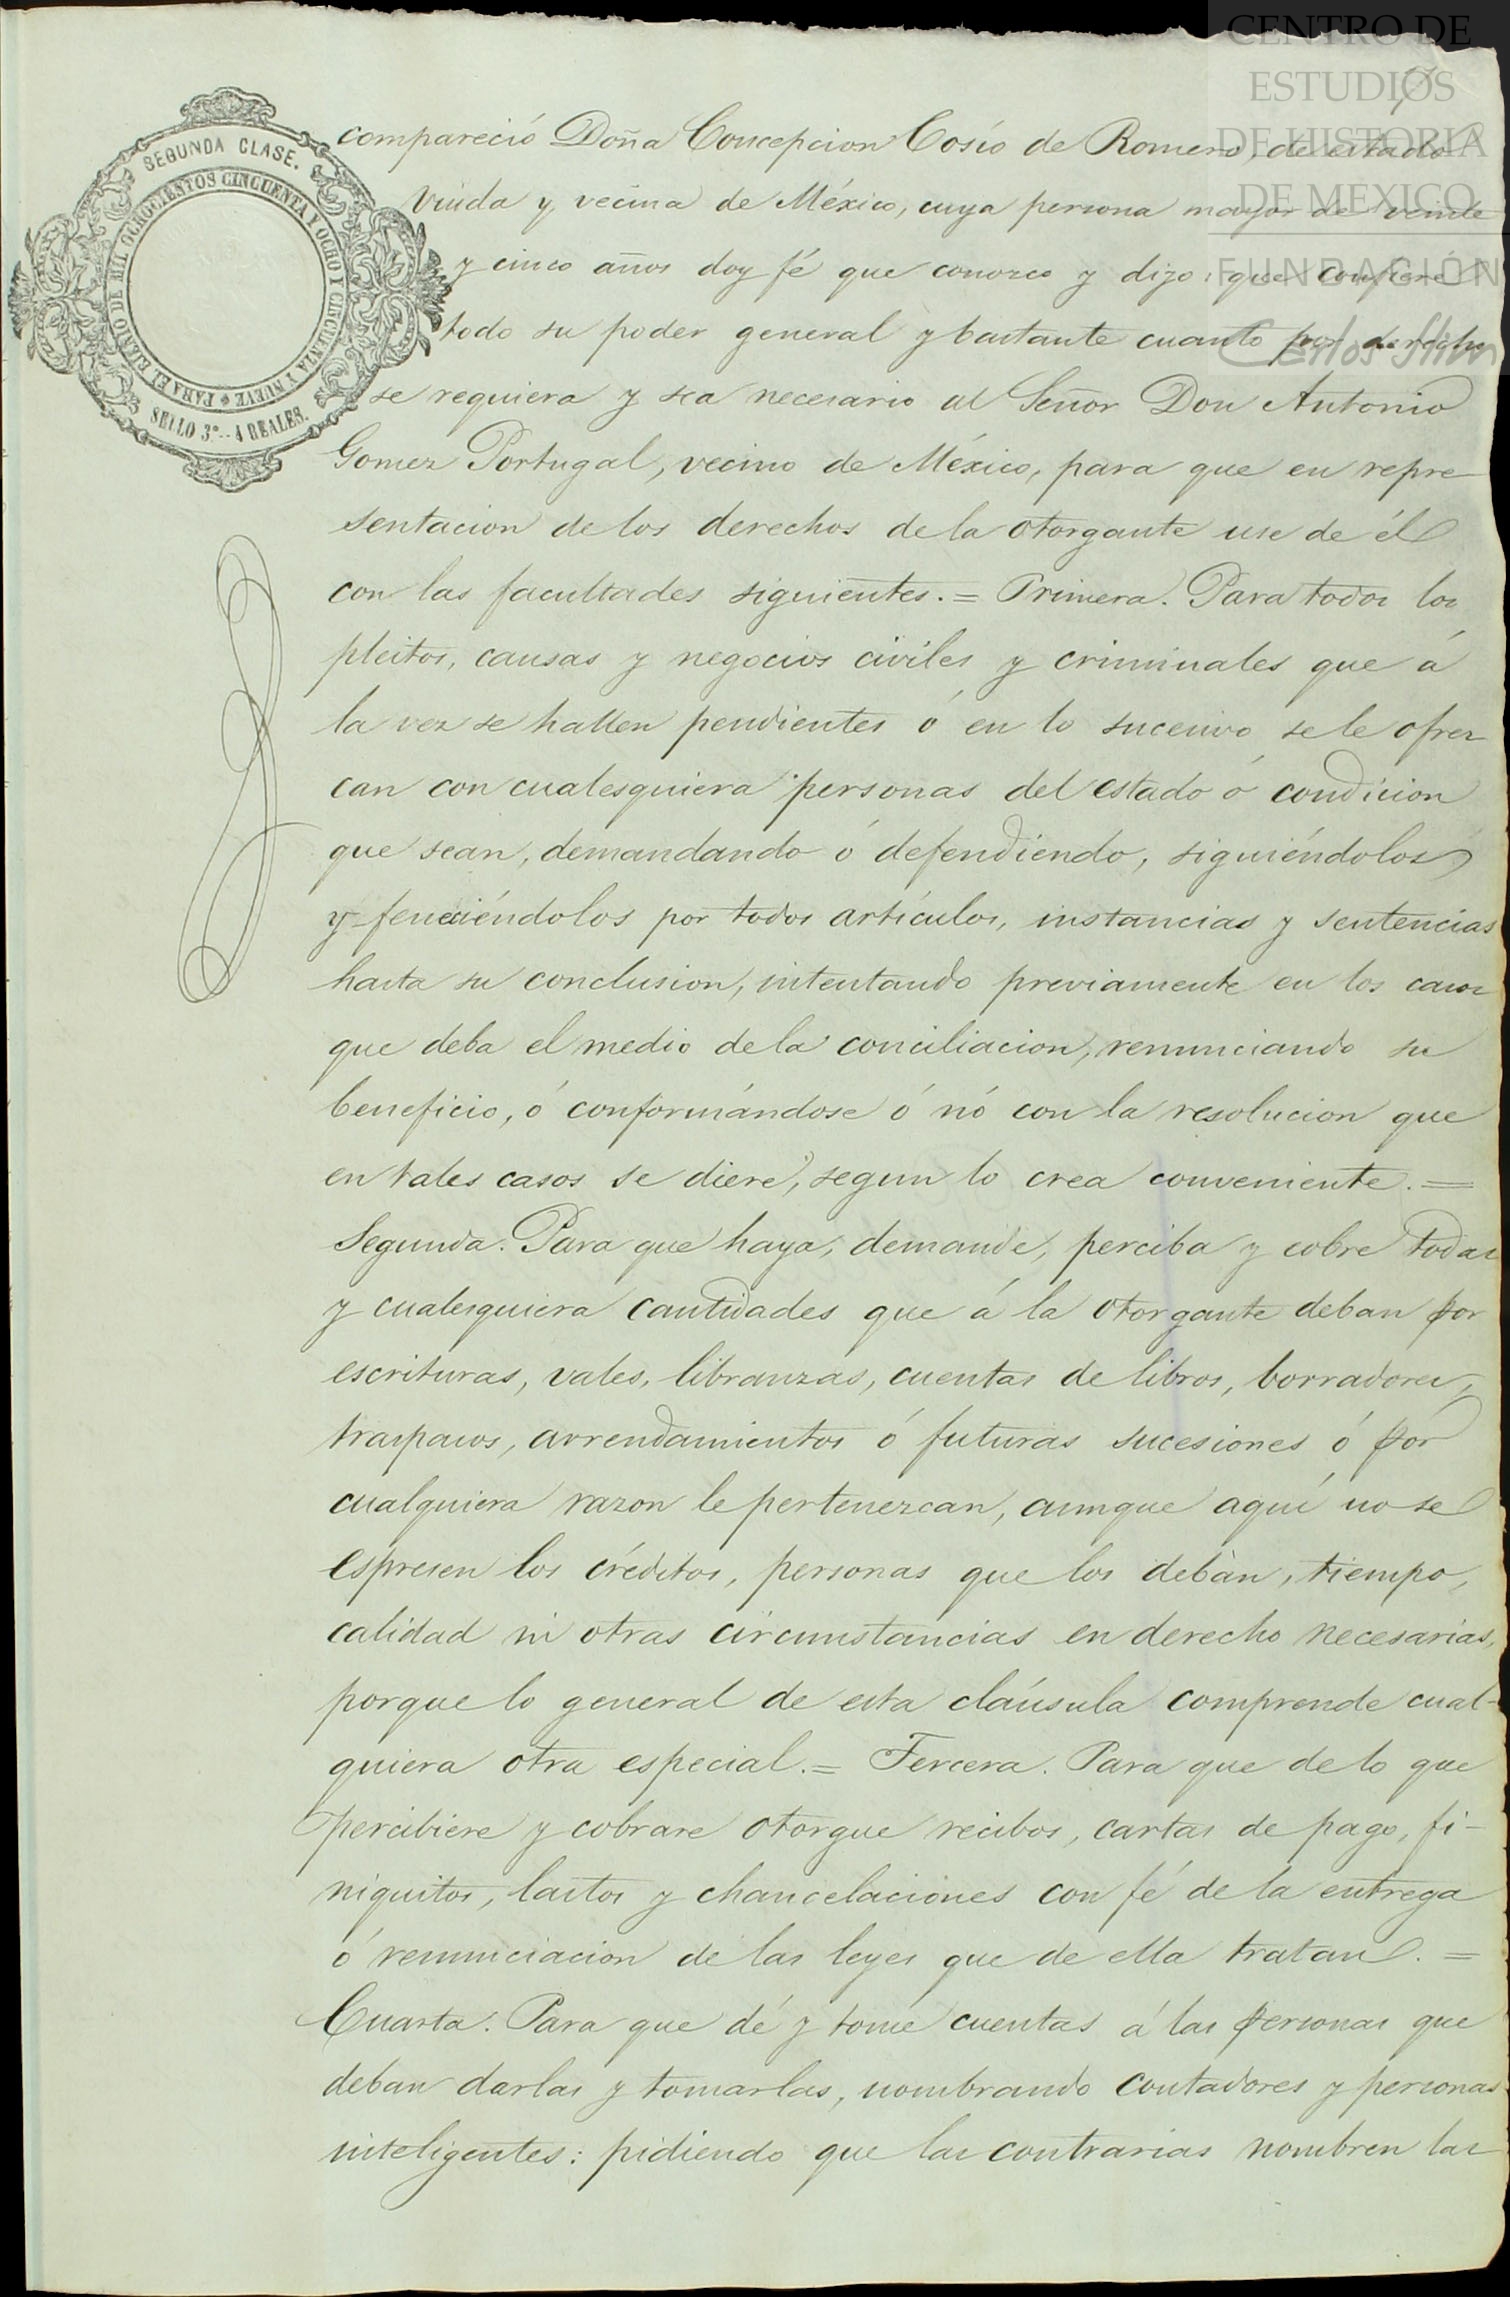 CENTRO DE
ESTUDIOS
DE HISTORIA
DE MEXICO
FUNDACIÓN
Carlos Slim
SEGUNDA CLASE.
PARA EL BIENIO DE MIL OCHOCIENTOS CINCUENTA Y OCHO Y CINCUENTA Y NUEVE
SELLO 3º.-4 REALES.
compareció Doña Concepcion Cosío de Romero, de estado
viuda y vecina de México, cuya persona mayor de veinte
y cinco años doy fé que conozco y dijo: que confiere
todo su poder general y bastante cuanto por derecho
se requiera y sea necesario al Señor Don Antonio
Gomez Portugal, vecino de México, para que en repre-
sentacion de los derechos de la otorgante use de él
con las facultades siguientes.= Primera. Para todos los
pleitos, causas y negocios civiles y criminales que á
la vez se hallen pendientes ó en lo sucesivo se le ofrez-
can con cualesquiera personas del estado ó condicion
que sean, demandando ó defendiendo, siguiéndolos
y feneciéndolos por todos artículos, instancias y sentencias
hasta su conclusion, intentando previamente en los casos
que deba el medio de la conciliacion, renunciando su
beneficio, ó conformándose ó nó con la resolucion que
en tales casos se diere, segun lo crea conveniente.=
Segunda. Para que haya, demande, perciba y cobre todas
y cualesquiera cantidades que á la otorgante deban por
escrituras, vales, libranzas, cuentas de libros, borradores,
traspasos, arrendamientos ó futuras sucesiones ó por
cualquiera razon le pertenezcan, aunque aquí no se
espresen los créditos, personas que los deban, tiempo,
calidad ni otras circunstancias en derecho necesarias,
porque lo general de esta cláusula comprende cual-
quiera otra especial.= Tercera. Para que de lo que
percibiere y cobrare otorgue recibos, cartas de pago, fi-
niquitos, lastos y chancelaciones con fé de la entrega
ó renunciacion de las leyes que de ella tratan.=
Cuarta. Para que dé y tome cuentas á las personas que
deban darlas y tomarlas, nombrando contadores y personas
inteligentes: pidiendo que las contrarias nombren las